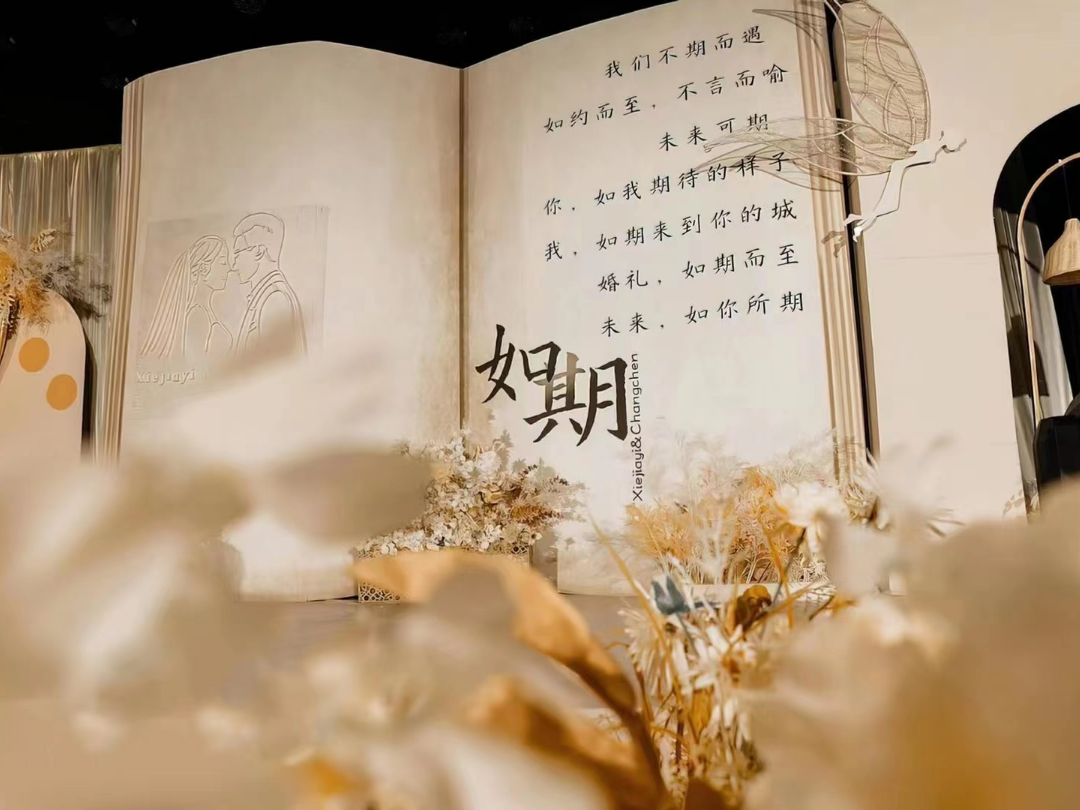 我们不期而遇
如约而至，不言而喻
未来可期
你，如我期待的样子
我，如期来到你的城
婚礼，如期而至
未来，如你所期
如期
Xiejiayi&Changchen
Xiejiayi